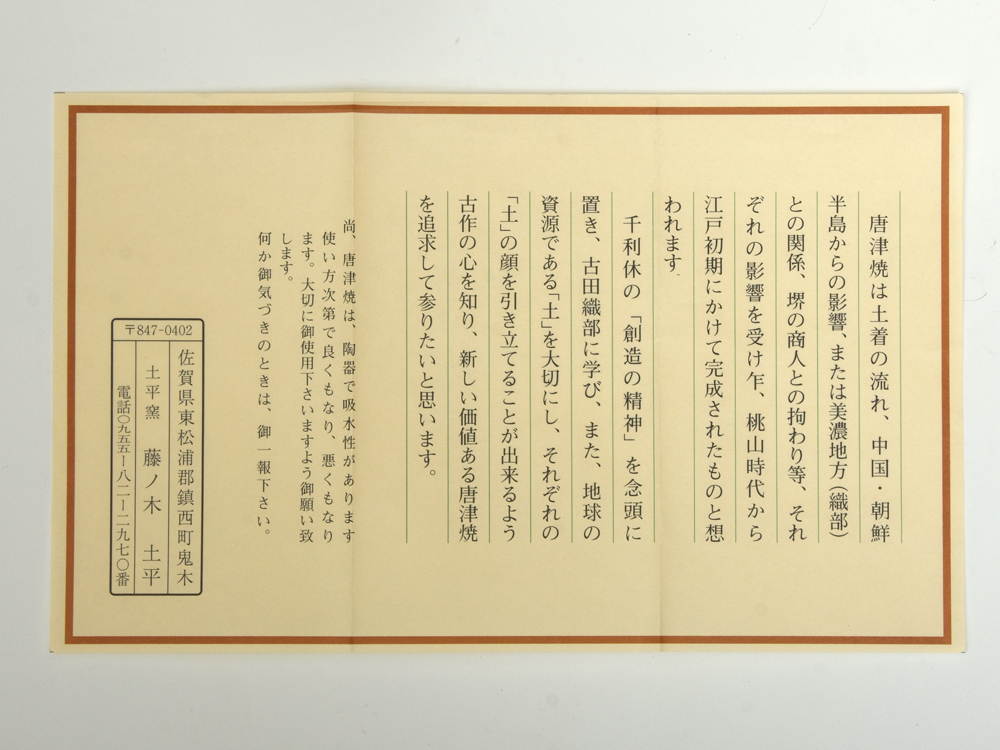 唐津焼は土着の流れ、中国・朝鮮
半島からの影響、または美濃地方（織部）
との関係、堺の商人との拘わり等、それ
ぞれの影響を受け乍、桃山時代から
江戸初期にかけて完成されたものと想
われます.
千利休の「創造の精神」を念頭に
置き、古田織部に学び、また、地球の
資源である「土」を大切にし、それぞれの
「土」の顔を引き立てることが出来るよう
古作の心を知り、新しい価値ある唐津焼
を追求して参りたいと思います。
尚、唐津焼は、陶器で吸水性があります
使い方次第で良くもなり、悪くもなり
ます。大切に御使用下さいますよう御願い致
します。
何か御気づきのときは、御一報下さい。
〒847-0402
佐賀県東松浦郡鎮西町鬼木
土平窯 藤ノ木 土平
電話〇九五五ー八二ー二九七〇番